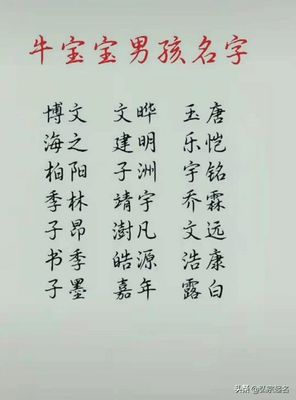 牛宝宝男孩名字
博文 文晔 玉唐
海之 建明 乐恺
柏阳 子洲 宇铭
季林 靖宇 乔霖
子昂 澍凡 文远
书季 皓源 浩康
子墨 嘉年 露白
头条@弘家起名